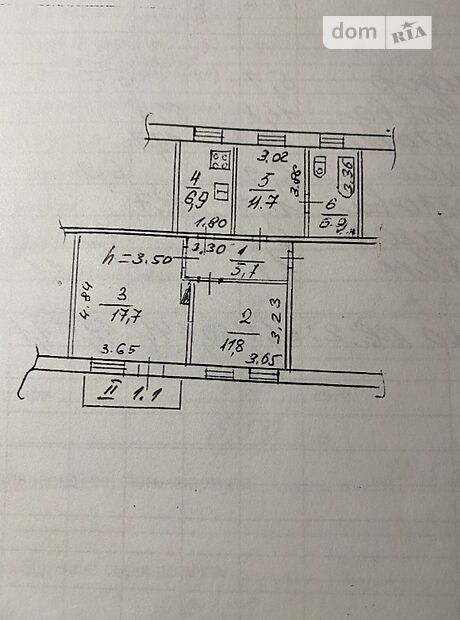 dom RIA
4
6,9
1.80
3.02
5
11.7
3.88
3.36
6
6.9
h=3.50
3,30
1
5,7
4.84
3
17,7
3.65
2
11,8
3,23
3.65
II 1.1